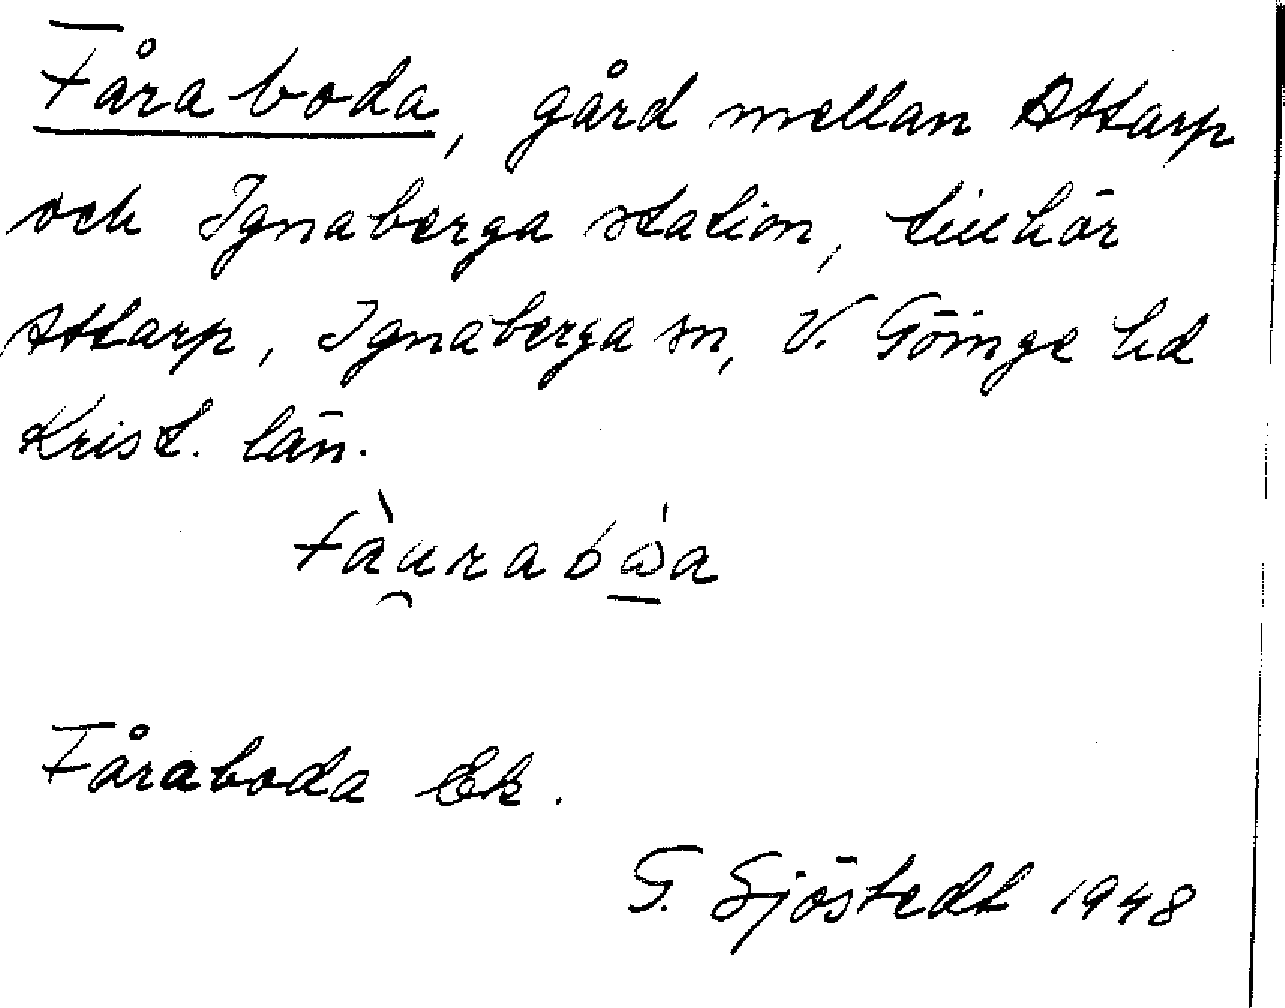 Fåraboda, gård mellan Attarp
och Ignaberga station, tillhör
Attarp, Ignaberga sn, V. Göinge hd
Krist. län.
Fåraboda Ek.
G. Sjöstedt 1948